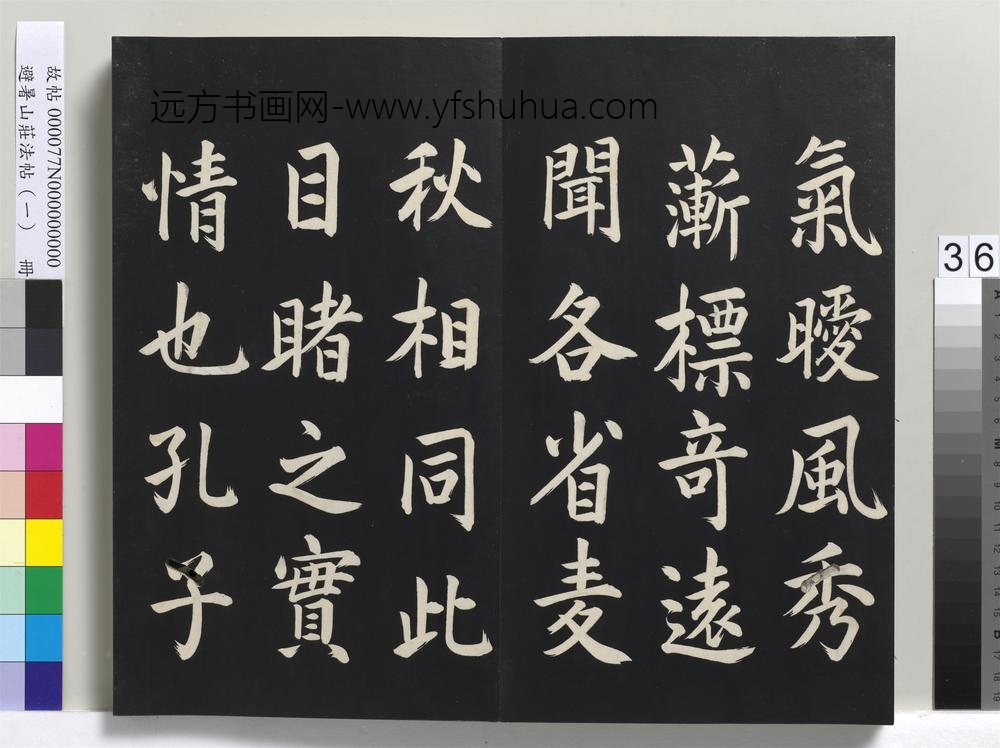 远方书画网-www.yfshuhua.com
氣曖風秀
蔪標竒遠
聞各省麦
秋相同此
目睹之實
情也孔子
故帖 000077N000000000
避暑山莊法帖(一) 冊
36